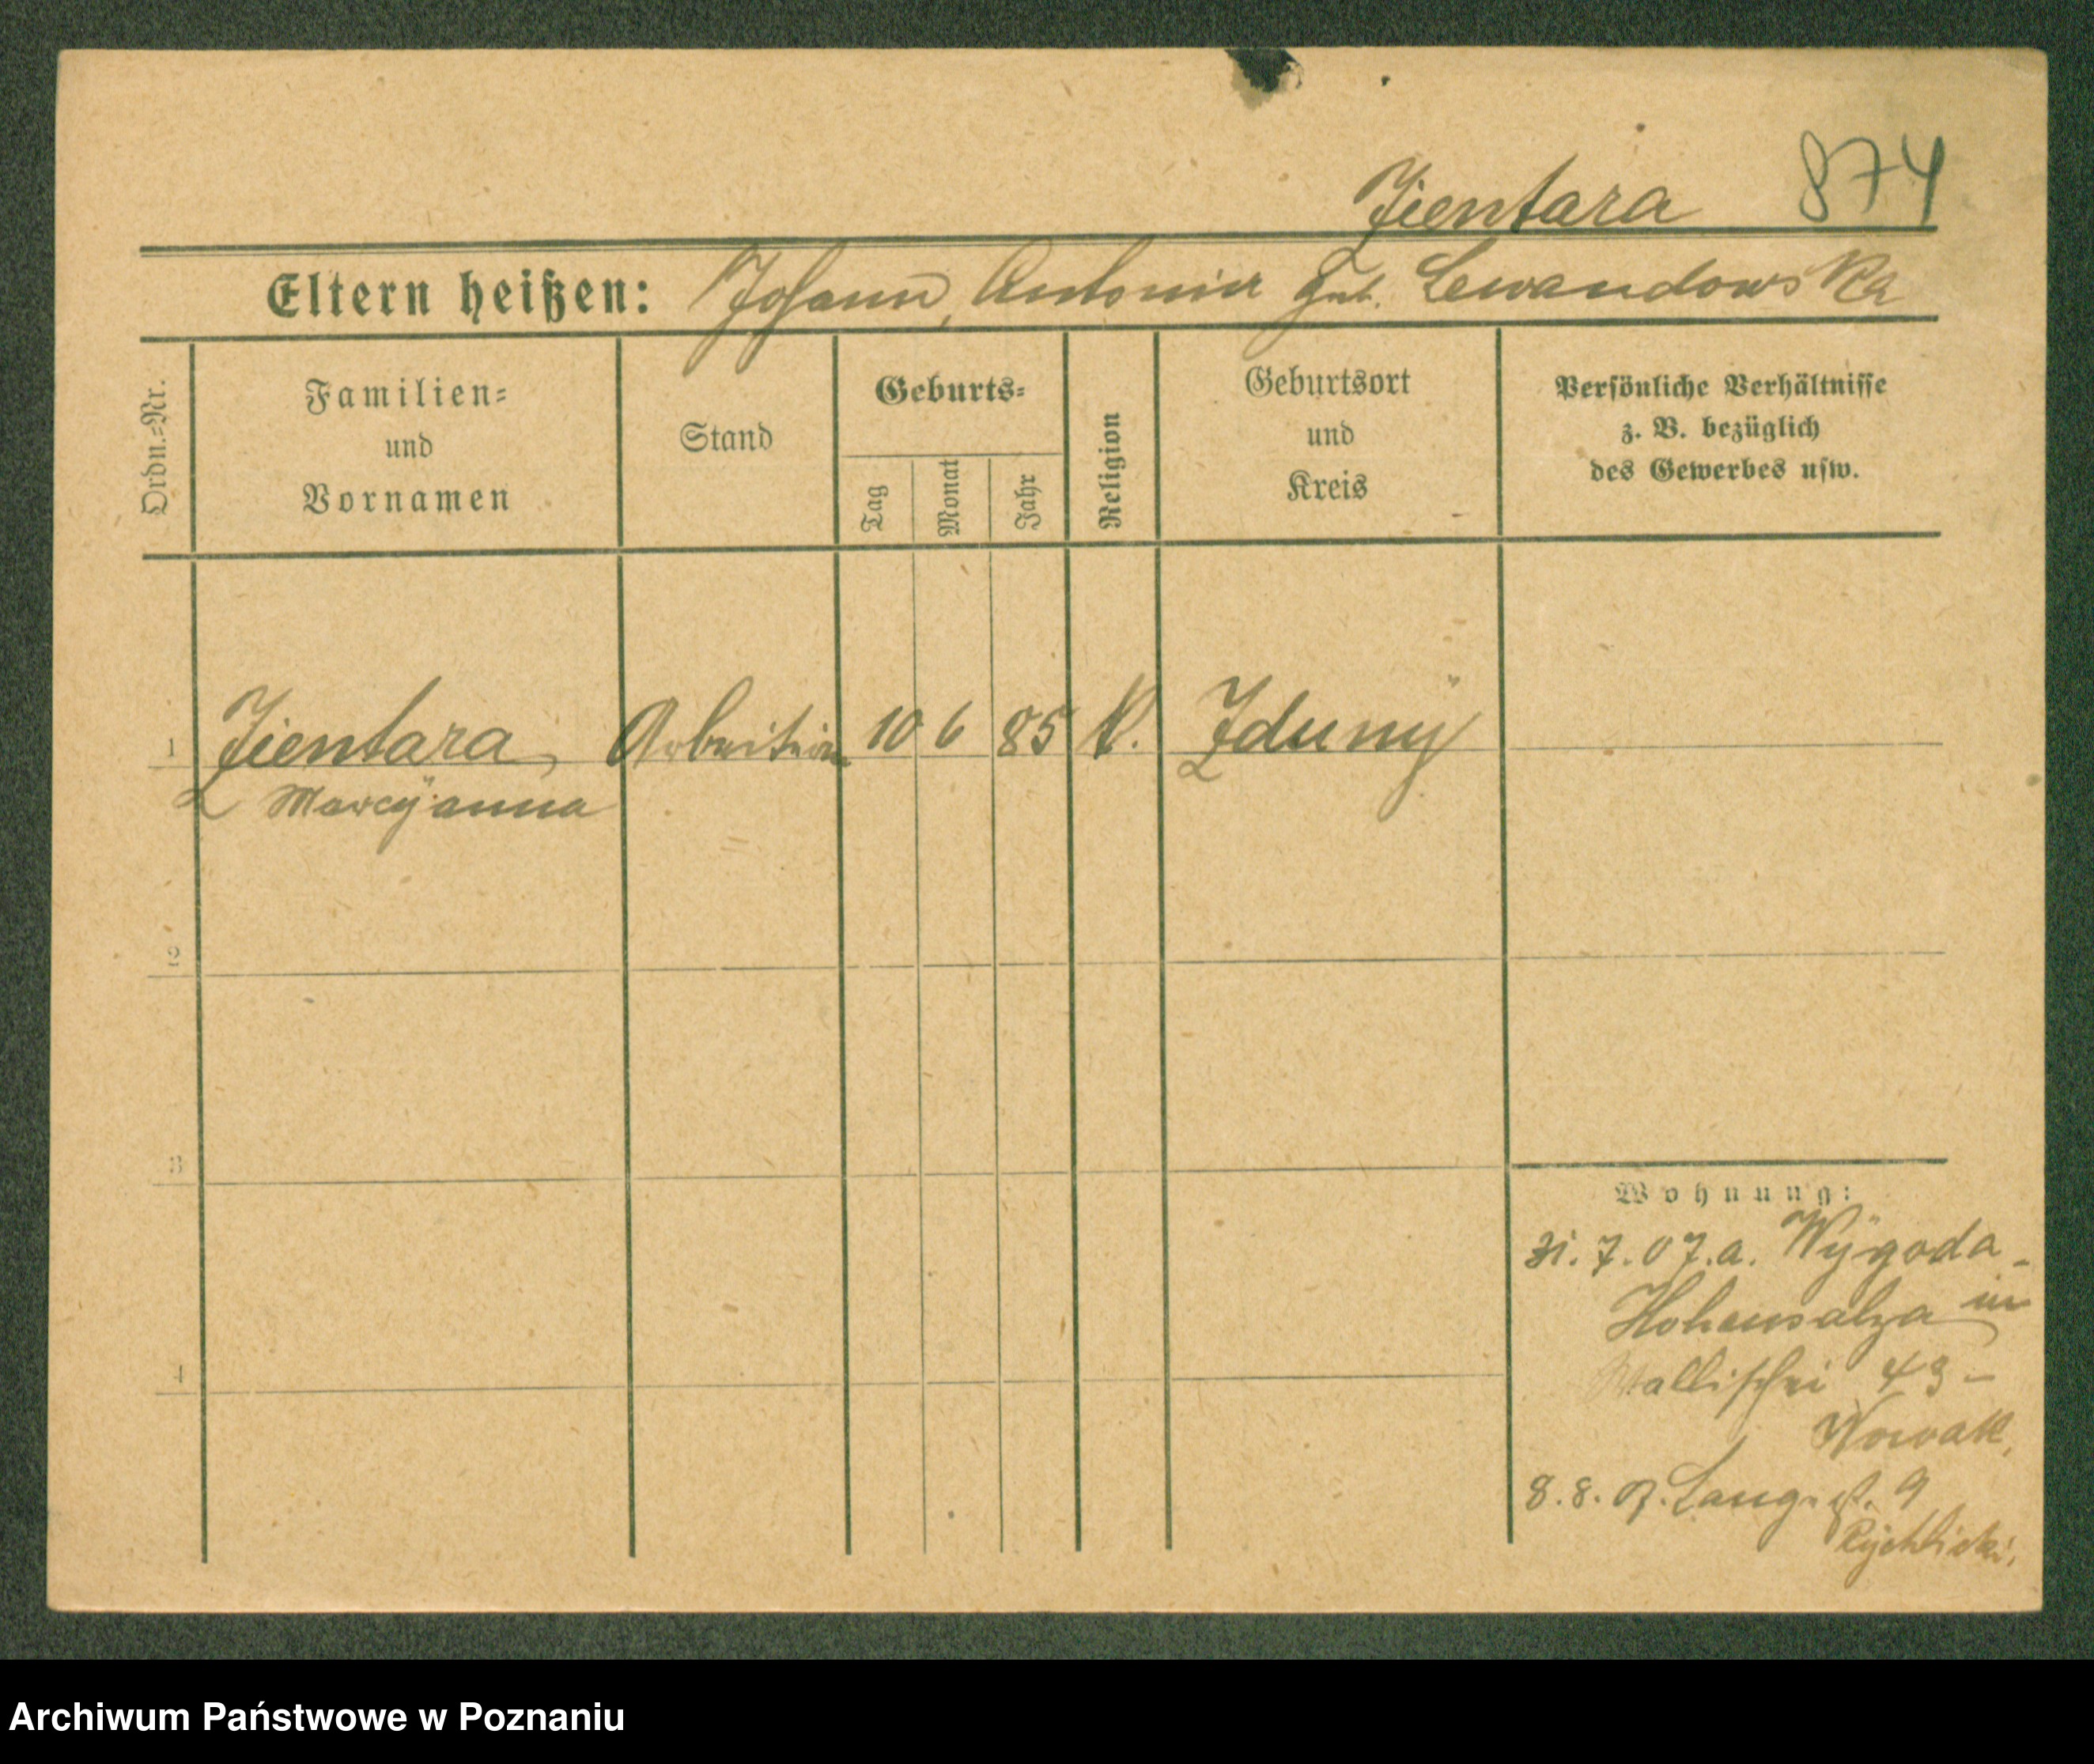 Zientara 874
Eltern heißen: Johann, Antonina geb. Lewandowska
Ordn.=Nr.
Familien=
und
Vornamen
Stand
Geburts=
Tag
Monat
Jahr
Religion
Geburtsort
und
Kreis
Persönliche Verhältnisse
z. B. bezüglich
des Gewerbes usw.
1 Zientara, Arbeiterin 10 6 85 K. Zduny
Marcyanna
2
3
4
Wohnung:
31. 7. 07. a. Wygoda -
Hohensalza in
Wallischei 43 -
Nowak,
8. 8. 07. Langestr. 9
Rychlicki,
Archiwum Państwowe w Poznaniu